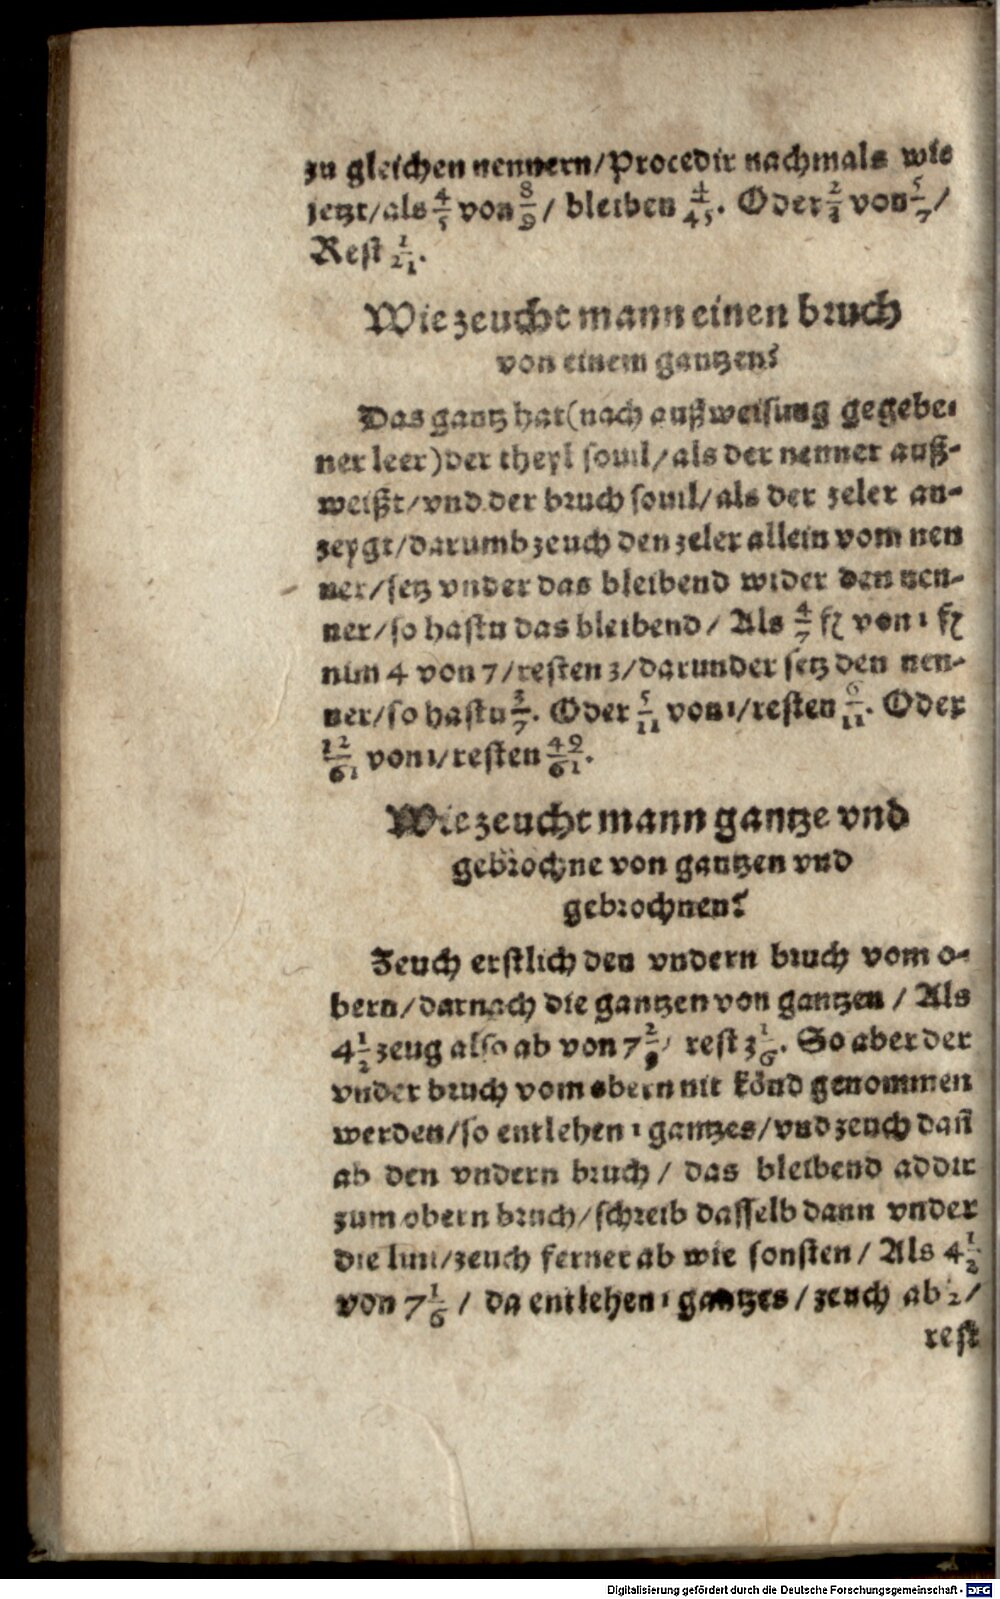 zu gleichen nennern/Procedir nachmals wie
jetzt/als 4/5 von 8/9/ bleiben 4/45. Oder 2/3 von 5/7/
Rest 1/21.
Wie zeucht mann einen bruch
von einem gantzen?
Das gantz hat (nach außweisung gegebe-
ner leer) der theyl souil/als der nenner auß-
weißt/vnd der bruch souil/als der zeler an-
zeygt/darumb zeuch den zeler allein vom nen
ner/setz vnder das bleibend wider den nen-
ner/so hastu das bleibend/ Als 4/7 fl von 1 fl
nim 4 von 7/resten 3/darunder setz den nen-
ner/so hastu 3/7. Oder 5/11 von 1/resten 6/11. Oder
12/61 von 1/resten 49/61.
Wie zeucht mann gantze vnd
gebrochne von gantzen vnd
gebrochnen?
Zeuch erstlich den vndern bruch vom o-
bern/darnach die gantzen von gantzen / Als
4 1/2 zeug also ab von 7 2/3/ rest 3 1/6. So aber der
vnder bruch vom obern nit könd genommen
werden/so entlehen 1 gantzes/vnd zeuch dañ
ab den vndern bruch / das bleibend addir
zum obern bruch/schreib dasselb dann vnder
die lini/zeuch ferner ab wie sonsten / Als 4 1/2
von 7 1/6 / da entlehen 1 gantzes / zeuch ab 1/2/
rest
Digitalisierung gefördert durch die Deutsche Forschungsgemeinschaft - DFG